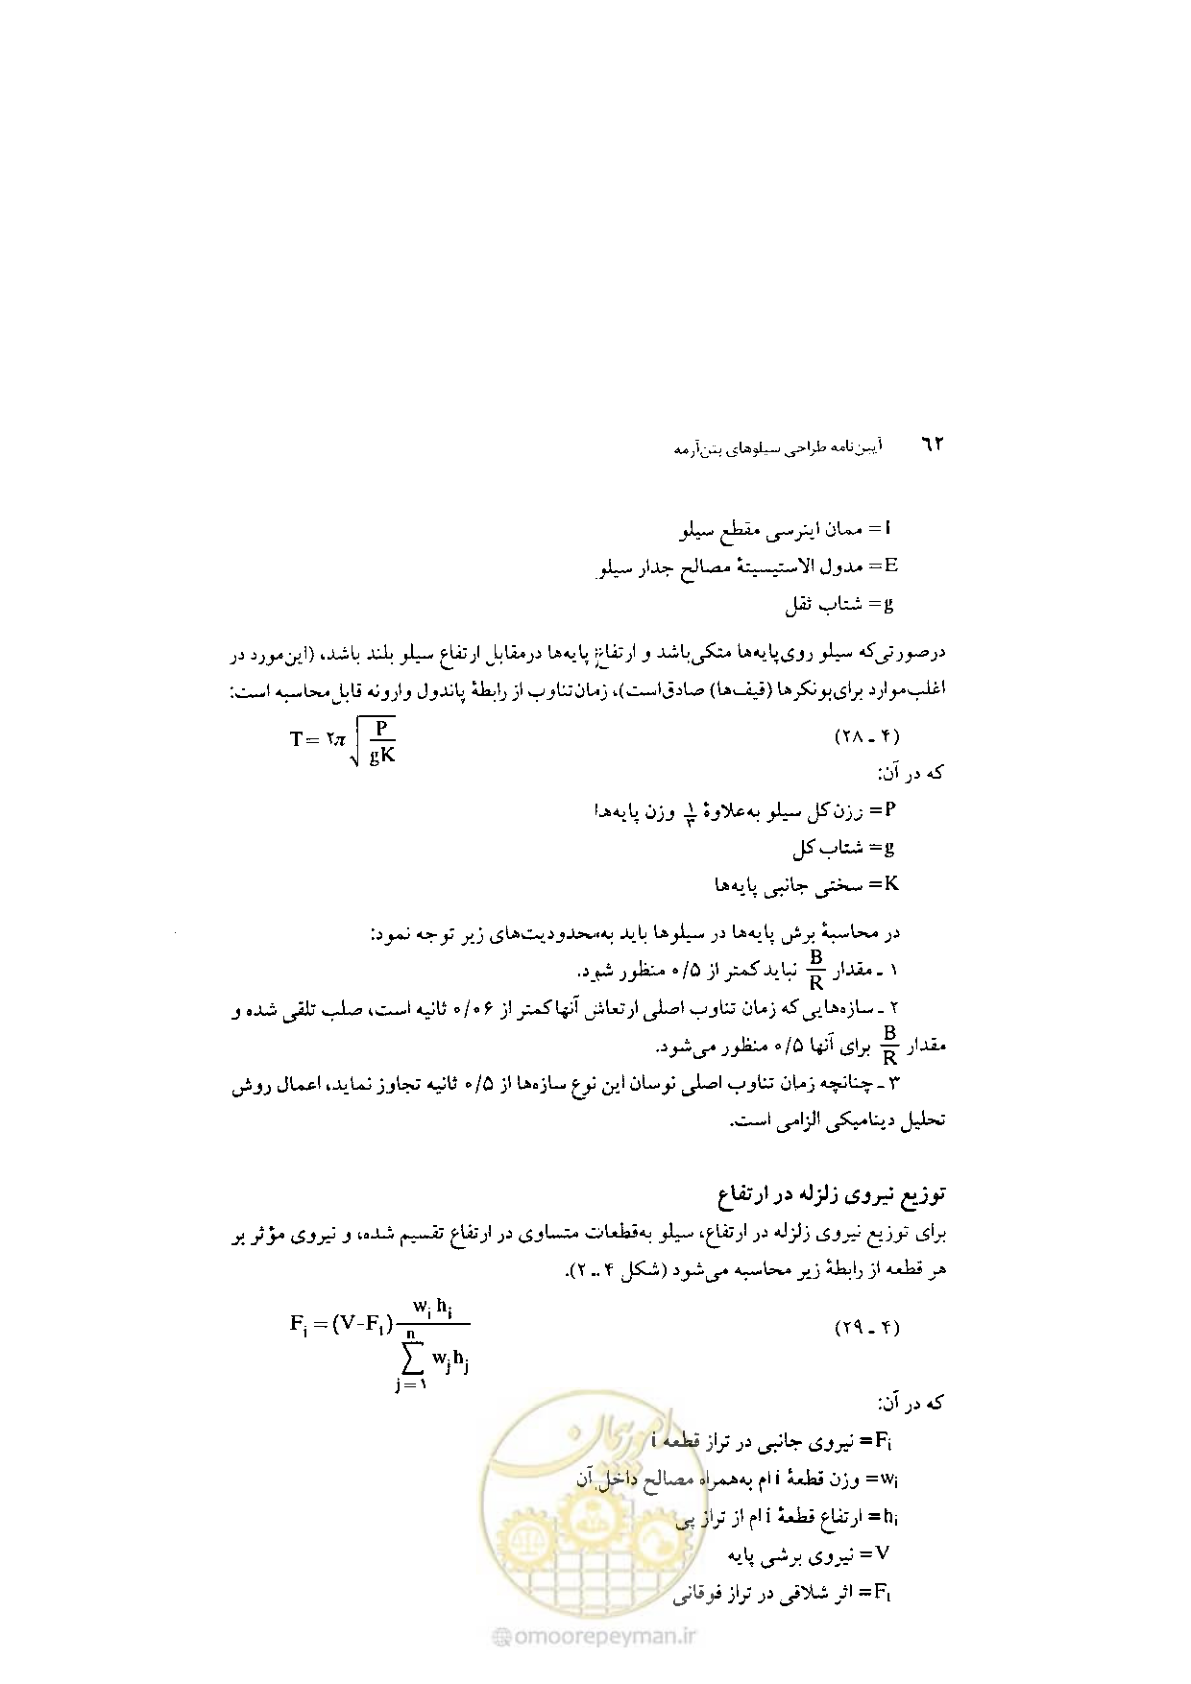 ۶۲ آیین‌نامه طراحی سیلوهای بتن‌آرمه
I = ممان اینرسی مقطع سیلو
E = مدول الاستیسیتهٔ مصالح جدار سیلو
g = شتاب ثقل
درصورتی‌که سیلو روی‌پایه‌ها متکی‌باشد و ارتفاع پایه‌ها درمقابل ارتفاع سیلو بلند باشد، (این‌مورد در
اغلب‌موارد برای‌بونکرها (قیف‌ها) صادق‌است)، زمان‌تناوب از رابطهٔ پاندول وارونه قابل‌محاسبه است:
T = ۲π √(P / gK) (۲۸ - ۴)
که در آن:
P = وزن کل سیلو به‌علاوهٔ ۱/۳ وزن پایه‌ها
g = شتاب کل
K = سختی جانبی پایه‌ها
در محاسبهٔ برش پایه‌ها در سیلوها باید به‌محدودیت‌های زیر توجه نمود:
۱ - مقدار B/R نباید کمتر از ۰/۵ منظور شود.
۲ - سازه‌هایی که زمان تناوب اصلی ارتعاش آنها کمتر از ۰/۰۶ ثانیه است، صلب تلقی شده و
مقدار B/R برای آنها ۰/۵ منظور می‌شود.
۳ - چنانچه زمان تناوب اصلی نوسان این نوع سازه‌ها از ۰/۵ ثانیه تجاوز نماید، اعمال روش
تحلیل دینامیکی الزامی است.
توزیع نیروی زلزله در ارتفاع
برای توزیع نیروی زلزله در ارتفاع، سیلو به‌قطعات متساوی در ارتفاع تقسیم شده، و نیروی مؤثر بر
هر قطعه از رابطهٔ زیر محاسبه می‌شود (شکل ۴ - ۲).
Fi = (V-Ft) wi hi / Σ(j=۱ تا n) wj hj (۲۹ - ۴)
که در آن:
Fi = نیروی جانبی در تراز قطعه i
wi = وزن قطعهٔ i ام به‌همراه مصالح داخل آن
hi = ارتفاع قطعهٔ i ام از تراز پی
V = نیروی برشی پایه
Ft = اثر شلاقی در تراز فوقانی
امور پیمان
@omoorepeyman.ir